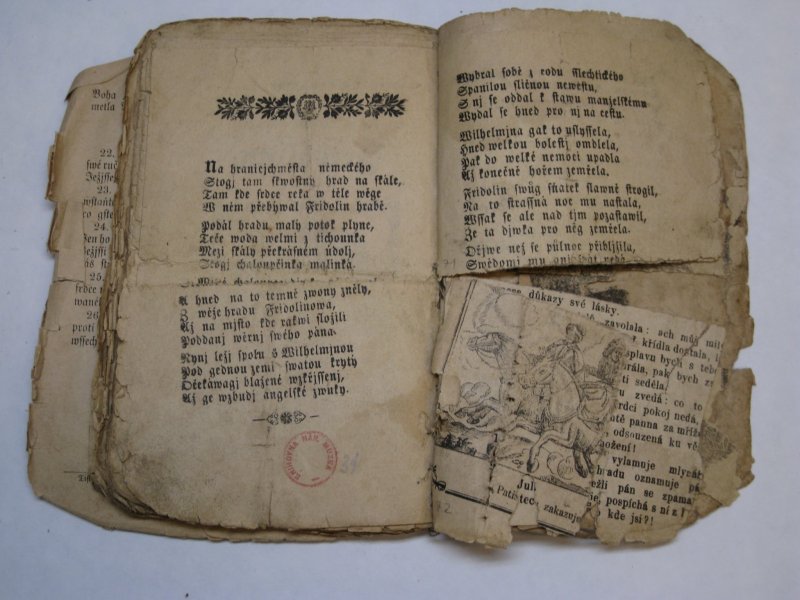 Boha
metla
22.
swé ruč
Ježjsse
23.
24.
Jen ho
25.
srdce
wané
26
proti
wssech
Na hranicjchměsta německého
Stogj tam skwostný hrad na skále,
Tam kde srdce reka w těle wěge
W něm přebýwal Fridolin hrabě.
Podál hradu malý potok plyne,
Teče woda welmi z tichounka
Mezi skály překrásném údolj,
Stogj chaloupčinka malinká.
A hned na to temně zwony zněly,
Z wěže hradu Fridolinowa,
Až na mjsto kde rakwi složili
Poddanj wěrnj swého pána.
Nynj ležj spolu s Wilhelmjnou
Pod gednou zemj swatou krytý
Očekáwagj blažené wzkřjssenj,
Až ge wzbudj angelské zwuky.
KNIHOVNA NÁR. MUZEA
Wybral sobě z rodu sslechtického
Spanilou sličnou newěstu,
S nj se oddal k stawu manželskému
Wydal se hned pro nj na cestu.
Wilhelmjna gak to uslyssela,
Hned welkou bolestj omdlela,
Pak do welké nemoci upadla
Až konečně hořem zemřela.
Fridolin swůg sňatek slawně strogil,
Na to strassná noc mu nastala,
Wssak se ale nad tjm pozastawil,
Že ta djwka pro něg zemřela.
Dřjwe než se půlnoc přibljžila,
Swědomj mu
71
důkazy své lásky.
zavolala: ach můj mil
křídla dostala,
splavu bych s tebo
pak bych
seděla.
zvedá: co to
rdci pokoj nedá,
panna za mříže
odsouzená ku
vylamuje mlynář
hradu oznamuje
pán se zpama
pospíchá s ní z
Jul
kde jsi?!
Pati
zakazuje
72